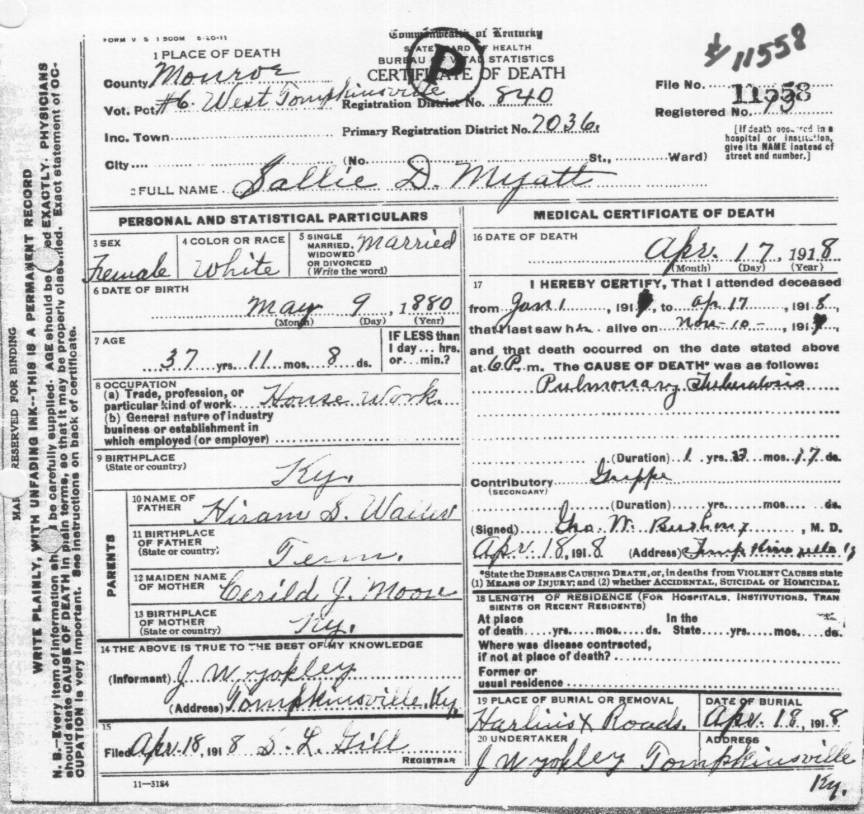 FORM V S 1 500M 5-20-11
Commonwealth of Kentucky
STATE BOARD OF HEALTH
BUREAU OF VITAL STATISTICS
CERTIFICATE OF DEATH
D
11558
1 PLACE OF DEATH
County Monroe
Vot. Pct. #6 West Tompkinsville Registration District No. 840
Inc. Town Primary Registration District No. 7036.
City (No. St., Ward)
File No. 11558
Registered No. 13
[If death occurred in a
hospital or institution,
give its NAME instead of
street and number.]
2 FULL NAME Sallie D. Myatt
PERSONAL AND STATISTICAL PARTICULARS
3 SEX
Female
4 COLOR OR RACE
White
5 SINGLE
MARRIED,
WIDOWED
OR DIVORCED
(Write the word)
Married
6 DATE OF BIRTH
May 9, 1880
(Month) (Day) (Year)
7 AGE
37 yrs. 11 mos. 8 ds.
IF LESS than
1 day... hrs.
or... min.?
8 OCCUPATION
(a) Trade, profession, or
particular kind of work House Work.
(b) General nature of industry
business or establishment in
which employed (or employer)
9 BIRTHPLACE
(State or country)
Ky.
PARENTS
10 NAME OF
FATHER
Hiram S.
11 BIRTHPLACE
OF FATHER
(State or country)
Tenn.
12 MAIDEN NAME
OF MOTHER
J. Moose
13 BIRTHPLACE
OF MOTHER
(State or country)
Ky.
14 THE ABOVE IS TRUE TO THE BEST OF MY KNOWLEDGE
(Informant) J W Yokley
(Address) Tompkinsville, Ky.
15
Filed Apr. 18, 1918 S. L. Gill
REGISTRAR
11—3184
MEDICAL CERTIFICATE OF DEATH
16 DATE OF DEATH
Apr. 17, 1918
(Month) (Day) (Year)
17 I HEREBY CERTIFY, That I attended deceased
from Jan 1, 191, to Ap 17, 1918,
that I last saw h alive on Nov-10-, 191
and that death occurred on the date stated above
at 6 P. m. The CAUSE OF DEATH* was as follows:
Pulmonary Tuberculosis
(Duration) 1 yrs. mos. 17 ds.
Contributory Grippe
(SECONDARY)
(Duration) yrs. mos. ds.
(Signed) W. M. D.
Apr 18, 1918 (Address) Tompkinsville Ky
*State the DISEASE CAUSING DEATH, or, in deaths from VIOLENT CAUSES state
(1) MEANS OF INJURY; and (2) whether ACCIDENTAL, SUICIDAL or HOMICIDAL
18 LENGTH OF RESIDENCE (FOR HOSPITALS, INSTITUTIONS, TRAN
SIENTS OR RECENT RESIDENTS)
At place In the
of death yrs. mos. ds. State yrs. mos. ds.
Where was disease contracted,
if not at place of death?
Former or
usual residence
19 PLACE OF BURIAL OR REMOVAL
Harlins X Roads.
DATE OF BURIAL
Apr. 18, 1918
20 UNDERTAKER
J W Yokley
ADDRESS
Tompkinsville
Ky.
RESERVED FOR BINDING
WRITE PLAINLY, WITH UNFADING INK--THIS IS A PERMANENT RECORD
N. B.—Every item of information should be carefully supplied. AGE should be stated EXACTLY. PHYSICIANS
should state CAUSE OF DEATH in plain terms, so that it may be properly classified. Exact statement of OC-
CUPATION is very important. See instructions on back of certificate.